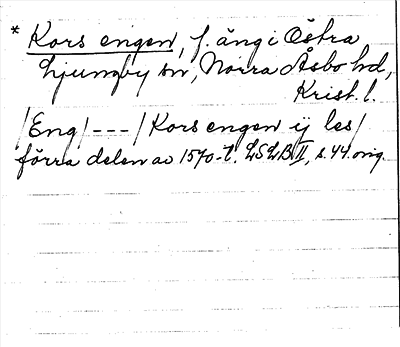 * Kors engen, f. äng i Östra
Ljungby sn, Norra Åsbo hd,
Krist. l.
/Eng/ --- / Kors engen ij les/
förra delen av 1570-t. LSLB II, s. 44. orig.